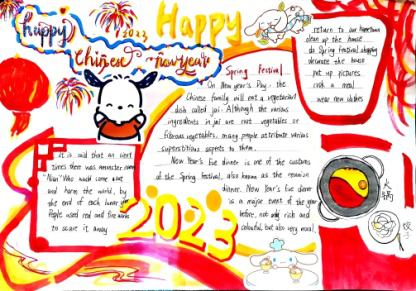 happy
2023
chinese newyear
Happy
return to our hometown
clean up the house
do Spring Festival shopping
decorate the house
put up pictures
cook a meal
wear new clothes
Spring Festival
On New Year's Day, the
Chinese family will eat a vegetarian
dish called jai. Although the various
ingredients in jai are root vegetables or
fibrous vegetables, many people attribute various
superstitious aspects to them.
New Year's Eve dinner is one of the customs
of the Spring Festival, also known as the reunion
dinner. New Year's Eve dinner
is a major event of the year
before, not only rich and
colourful, but also very
It is said that an
times there was a monster
"Nian". Who would come out
and harm the world, by
the end of each lunar year
People used red and fire
to scare it away
2023
火
锅
饺